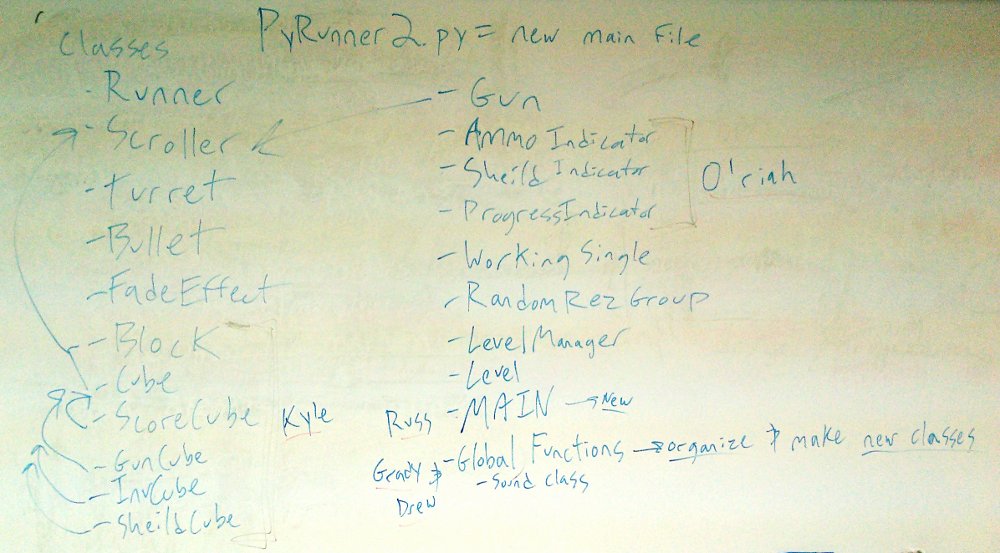 PyRunner2.py = new main file
Classes
- Runner
- Scroller
- Turret
- Bullet
- FadeEffect
- Block
- Cube
- ScoreCube
Kyle
- GunCube
- InvCube
- SheildCube
- Gun
- Ammo Indicator
- Sheild Indicator
- ProgressIndicator
O'riah
- Working Single
- RandomRezGroup
- LevelManager
- Level
Russ - MAIN → New
Grady & Drew
- Global Functions → organize & make new classes
- Sound class